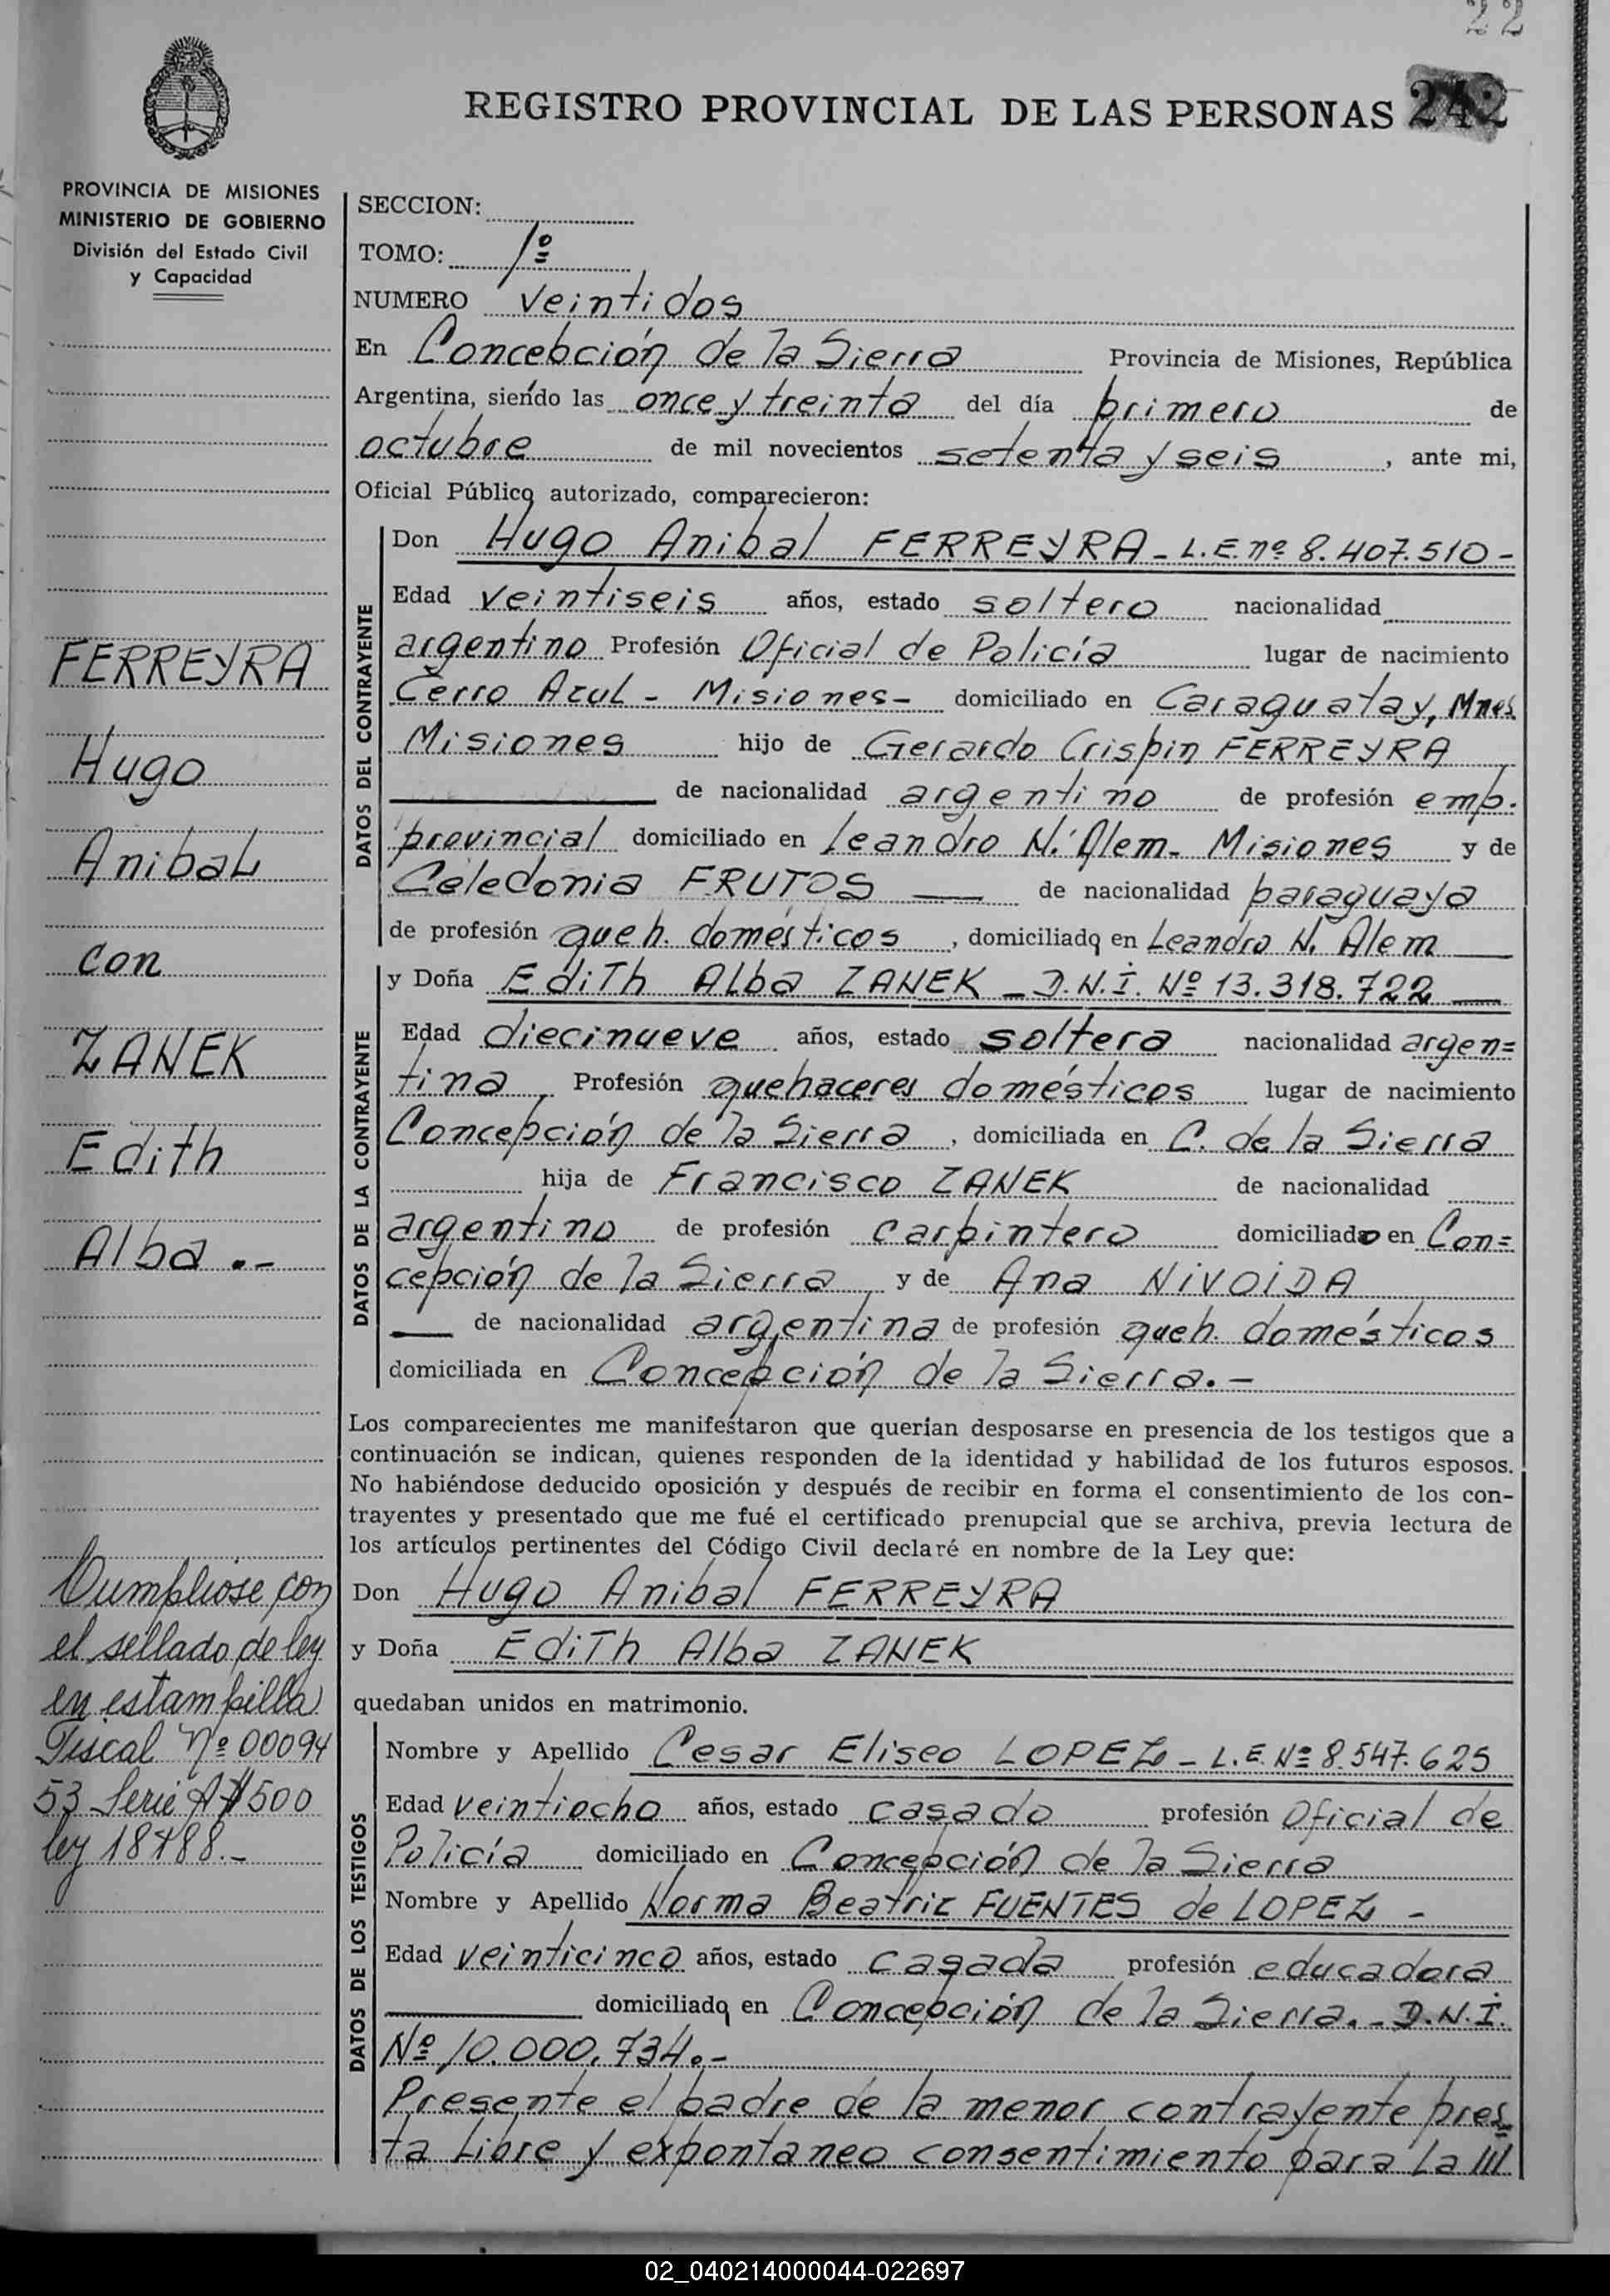 22
REGISTRO PROVINCIAL DE LAS PERSONAS 242
PROVINCIA DE MISIONES
MINISTERIO DE GOBIERNO
División del Estado Civil
y Capacidad
FERREYRA
Hugo
Anibal
con
ZANEK
Edith
Alba.-
Cumpliose con
el sellado de ley
en estampilla
Fiscal Nº 00094
53 Serie A $500
ley 18188.-
SECCION:
TOMO: 1º
NUMERO veintidos
En Concepción de la Sierra Provincia de Misiones, República
Argentina, siendo las once y treinta del día primero de
octubre de mil novecientos setenta y seis, ante mi,
Oficial Público autorizado, comparecieron:
DATOS DEL CONTRAYENTE
Don Hugo Anibal FERREYRA - L.E. nº 8.407.510-
Edad veintiseis años, estado soltero nacionalidad
argentino Profesión Oficial de Policía lugar de nacimiento
Cerro Azul - Misiones- domiciliado en Caraguatay, Mnes
Misiones hijo de Gerardo Crispin FERREYRA
de nacionalidad argentino de profesión emp.
provincial domiciliado en Leandro N. Alem- Misiones y de
Celedonia FRUTOS — de nacionalidad paraguaya
de profesión queh. domésticos, domiciliada en Leandro N. Alem —
DATOS DE LA CONTRAYENTE
y Doña EdiTh Alba ZANEK - D.N.I. Nº 13.318.722 —
Edad diecinueve años, estado soltera nacionalidad argen=
tina Profesión quehaceres domésticos lugar de nacimiento
Concepción de la Sierra, domiciliada en C. de la Sierra
hija de Francisco ZANEK de nacionalidad
argentino de profesión carpintero domiciliado en Con=
cepción de la Sierra y de Ana NiVOiDA
— de nacionalidad argentina de profesión queh. domésticos
domiciliada en Concepción de la Sierra.-
Los comparecientes me manifestaron que querían desposarse en presencia de los testigos que a
continuación se indican, quienes responden de la identidad y habilidad de los futuros esposos.
No habiéndose deducido oposición y después de recibir en forma el consentimiento de los con-
trayentes y presentado que me fué el certificado prenupcial que se archiva, previa lectura de
los artículos pertinentes del Código Civil declaré en nombre de la Ley que:
Don Hugo Anibal FERREYRA
y Doña EdiTh Alba ZANEK
quedaban unidos en matrimonio.
DATOS DE LOS TESTIGOS
Nombre y Apellido Cesar Eliseo LOPEZ - L.E. Nº 8.547.625
Edad veintiocho años, estado casado profesión Oficial de
Policía domiciliado en Concepción de la Sierra
Nombre y Apellido Norma Beatriz FUENTES de LOPEZ -
Edad veinticinco años, estado casada profesión educadora
domiciliada en Concepción de la Sierra.- D.N.I.
Nº 10.000.734.-
Presente el padre de la menor contrayente pres
ta libre y expontaneo consentimiento para la ///
02_040214000044-022697